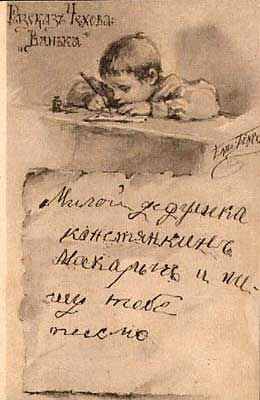 Разсказъ Чехова
"Ванька"
Милой дедушка
канстянкинъ
Макарычъ и пи-
шу тебѣ
писмо